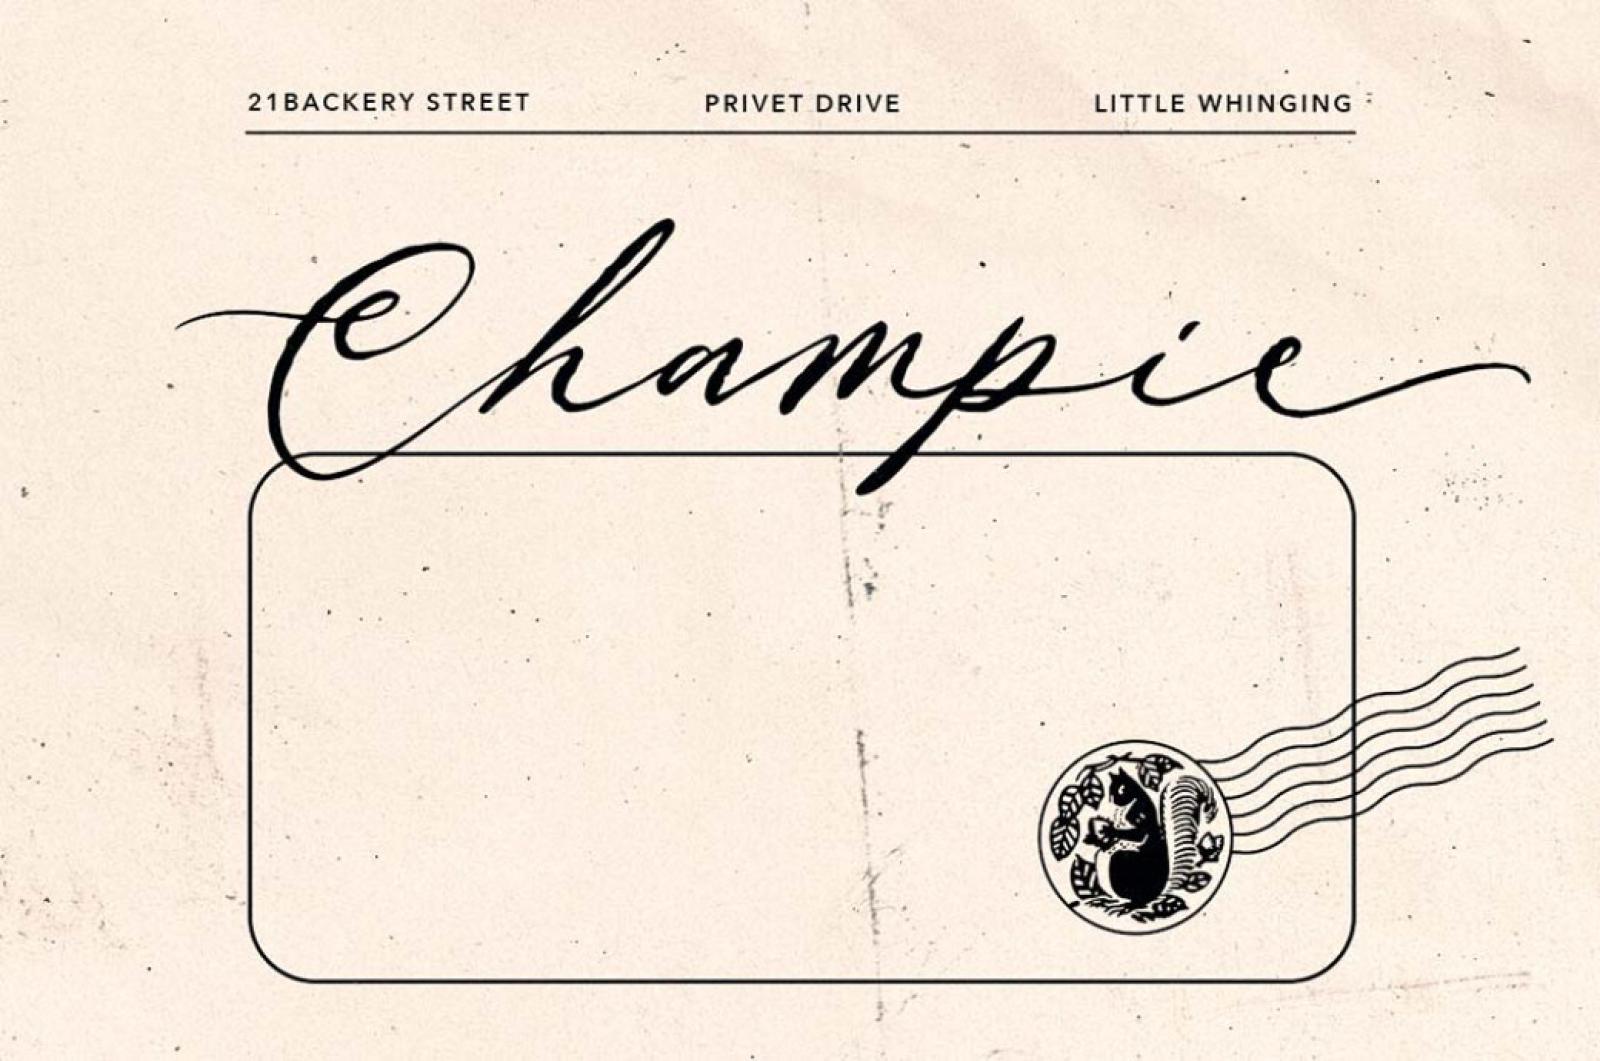 21BACKERY STREET PRIVET DRIVE LITTLE WHINGING
Champie